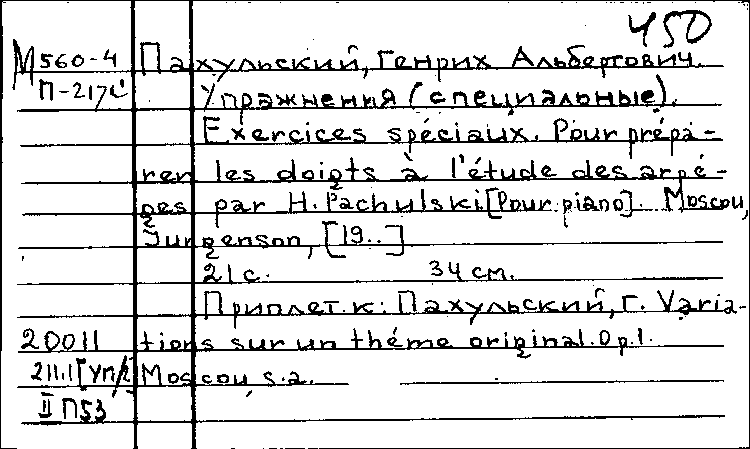 450
М560-4 Пахульский, Генрих Альбертович.
П-217с Упражнения (специальные).
Exercices spéciaux. Pour prépa-
rer les doigts à l'étude des arpé-
ges par H. Pachulski [Pour piano]. Moscou,
Jurgenson, [19..]
21 с. 34 см.
Приплет. к: Пахульский, Г. Varia-
20011 tions sur un thème original. Op. 1.
211.1[УП/2] Moscou, s.a.
II П53